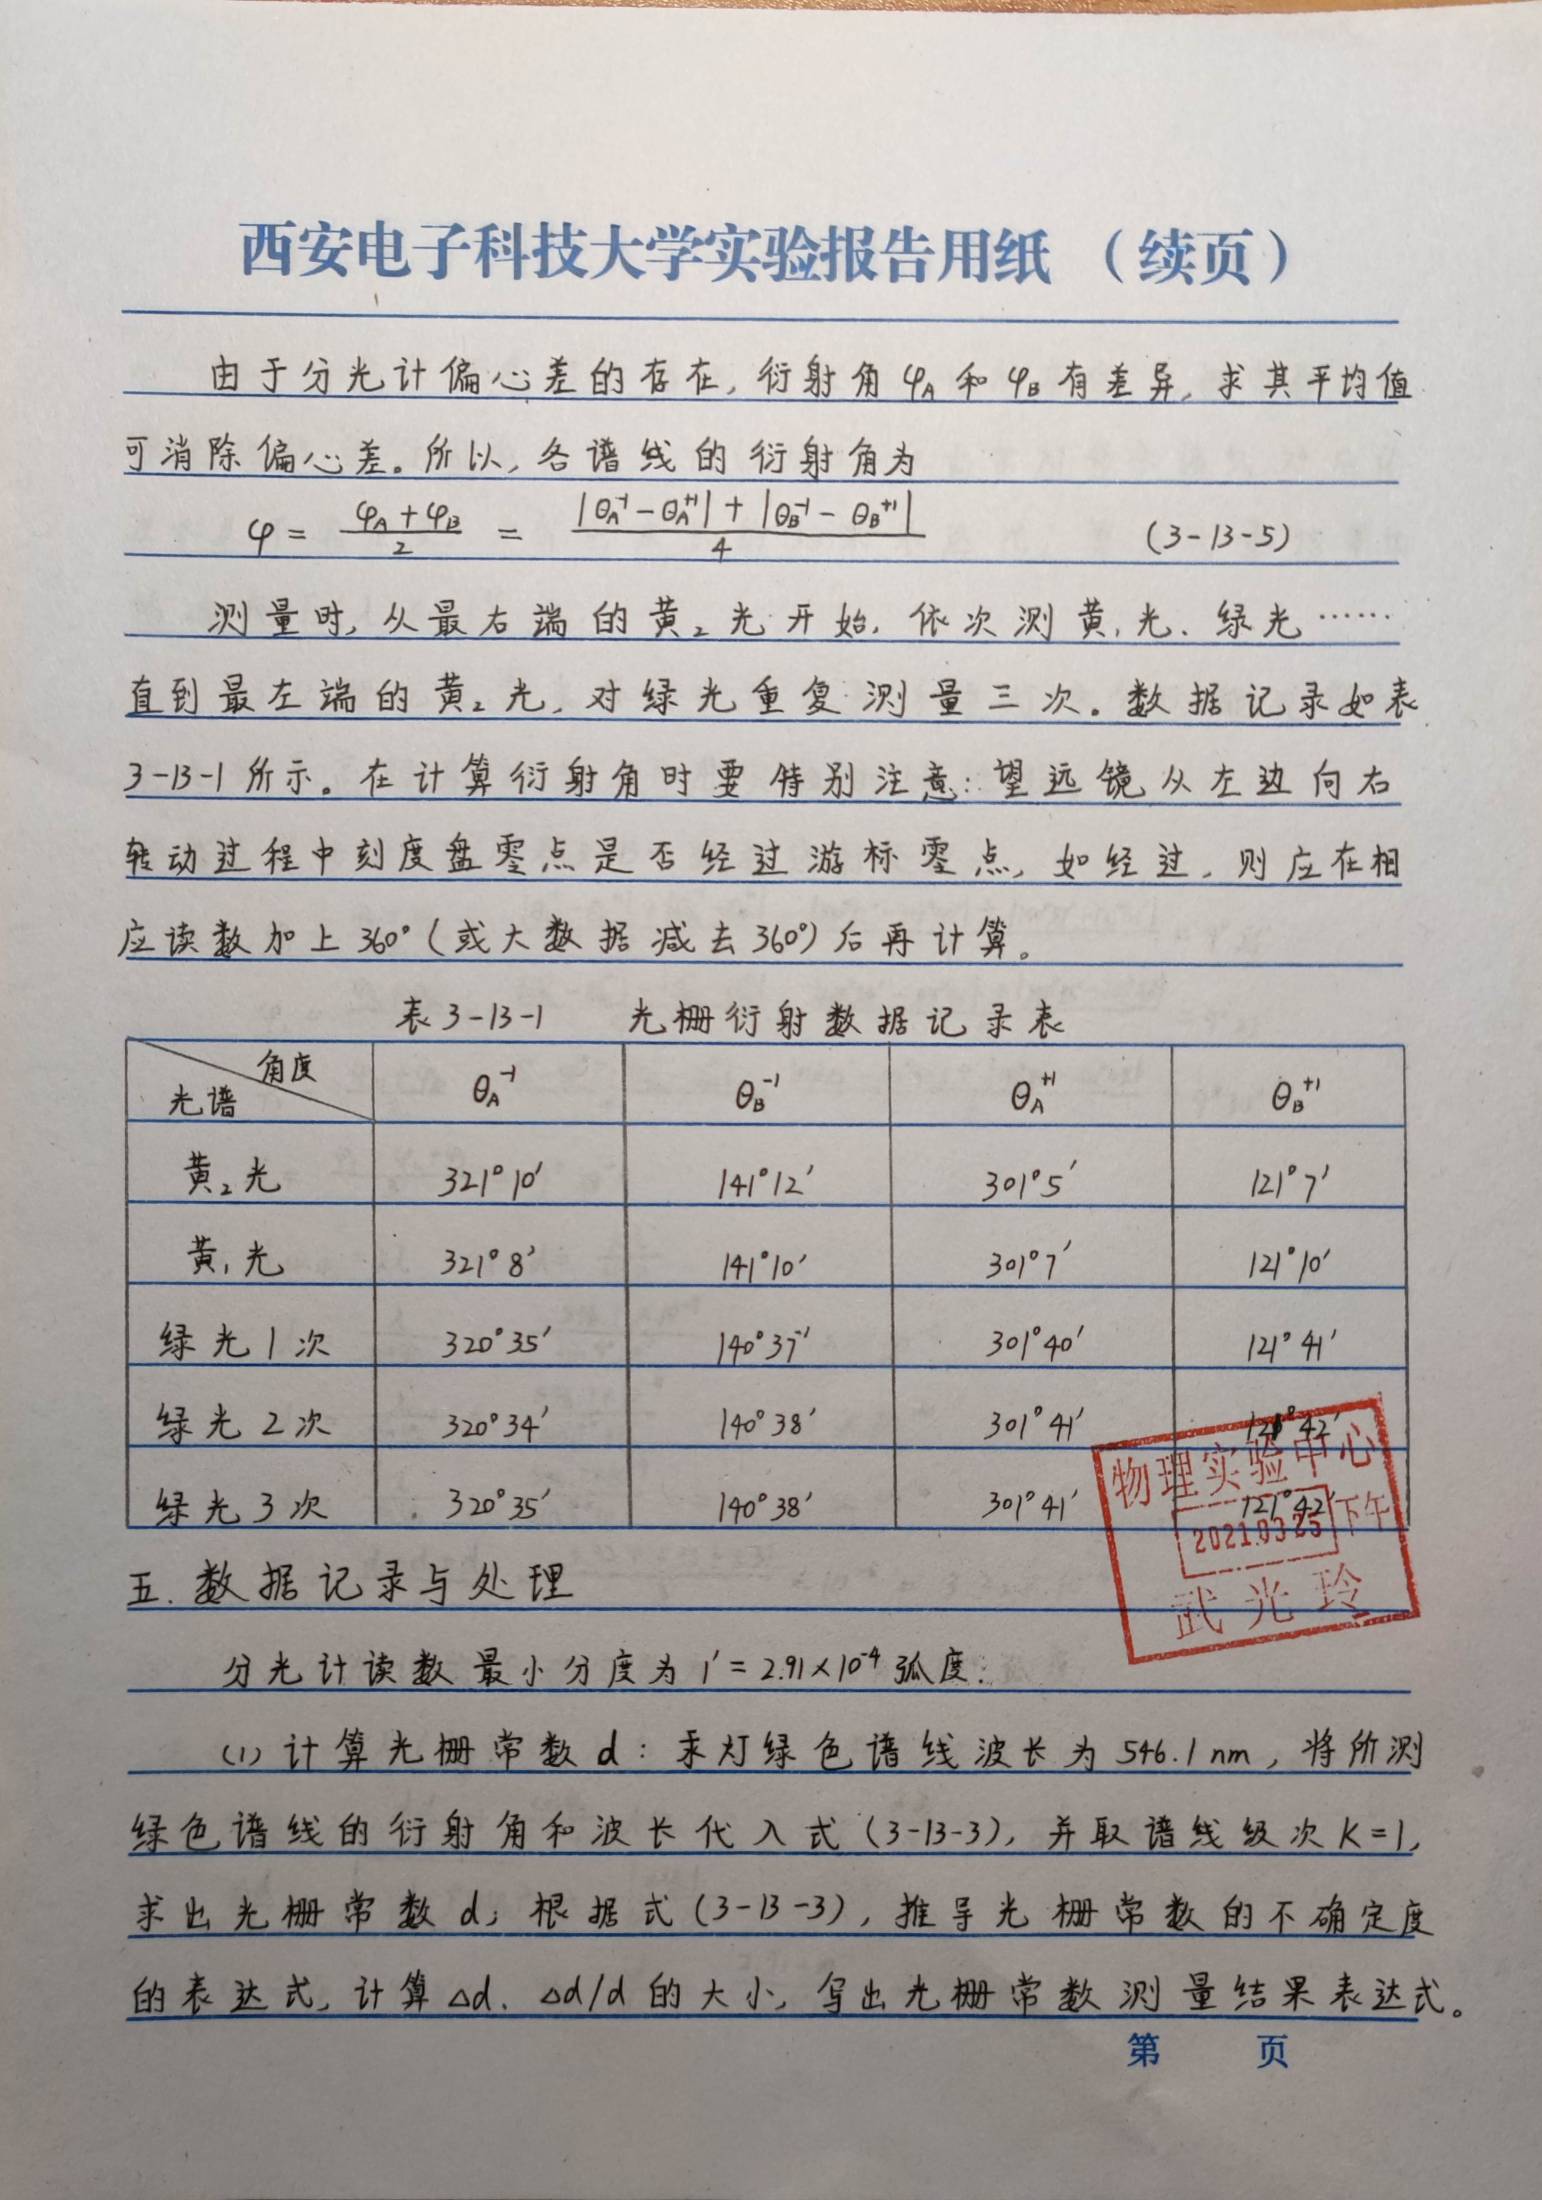 西安电子科技大学实验报告用纸 （续页）
由于分光计偏心差的存在，衍射角φA和φB有差异，求其平均值
可消除偏心差。所以，各谱线的衍射角为
φ = (φA+φB)/2 = (|θA⁻¹-θA⁺¹|+|θB⁻¹-θB⁺¹|)/4 (3-13-5)
测量时，从最右端的黄₂光开始，依次测黄₁光、绿光……
直到最左端的黄₂光，对绿光重复测量三次。数据记录如表
3-13-1所示。在计算衍射角时要特别注意：望远镜从左边向右
转动过程中刻度盘零点是否经过游标零点，如经过，则应在相
应读数加上360°(或大数据减去360°)后再计算。
表3-13-1 光栅衍射数据记录表
角度 光谱 θA⁻¹ θB⁻¹ θA⁺¹ θB⁺¹
黄₂光 321°10′ 141°12′ 301°5′ 121°7′
黄₁光 321°8′ 141°10′ 301°7′ 121°10′
绿光1次 320°35′ 140°37′ 301°40′ 121°41′
绿光2次 320°34′ 140°38′ 301°41′ 121°42′
绿光3次 320°35′ 140°38′ 301°41′ 121°42′
物理实验中心
2021.03.25 下午
武光玲
五.数据记录与处理
分光计读数最小分度为1′=2.91×10⁻⁴弧度.
(1)计算光栅常数d：汞灯绿色谱线波长为546.1nm，将所测
绿色谱线的衍射角和波长代入式(3-13-3)，并取谱线级次K=1，
求出光栅常数d；根据式(3-13-3)，推导光栅常数的不确定度
的表达式，计算Δd、Δd/d的大小，写出光栅常数测量结果表达式。
第 页